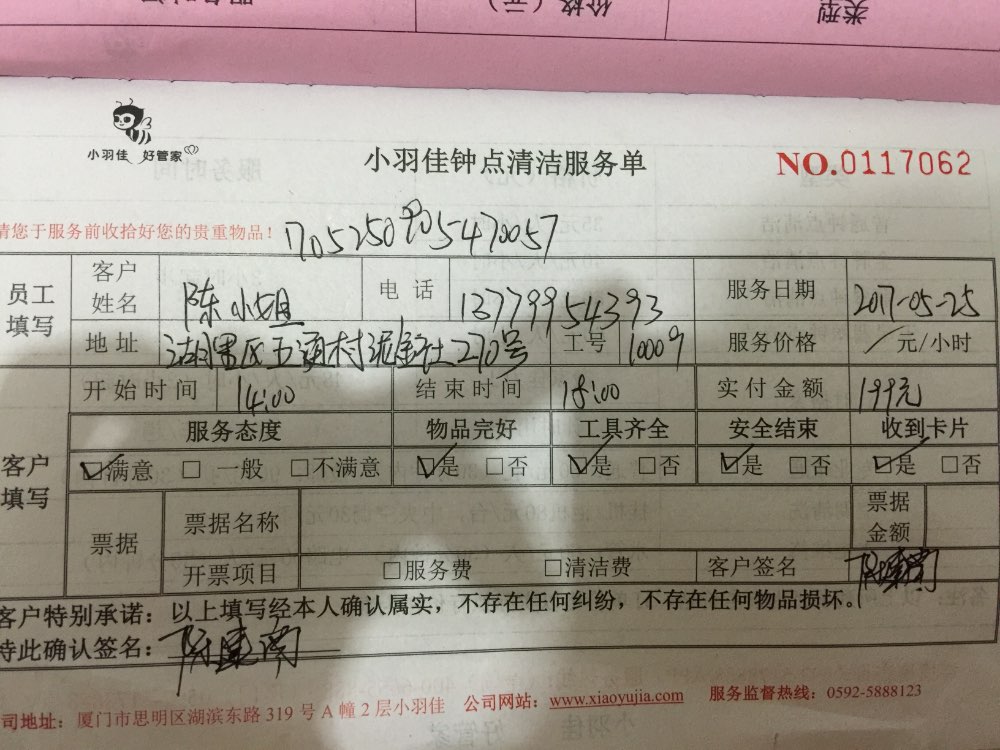 服务时间 价格（元） 类型
小羽佳 好管家
小羽佳钟点清洁服务单
NO.0117062
请您于服务前收拾好您的贵重物品！
员工填写 客户姓名 陈小姐 电话 13779954393 服务日期 2017-05-25
地址 湖里区五通村泥金社270号 工号 10009 服务价格 / 元/小时
客户填写 开始时间 14:00 结束时间 18:00 实付金额 199元
服务态度 物品完好 工具齐全 安全结束 收到卡片
☑满意 □一般 □不满意 ☑是 □否 ☑是 □否 ☑是 □否 ☑是 □否
票据 票据名称 票据金额
开票项目 □服务费 □清洁费 客户签名
客户特别承诺：以上填写经本人确认属实，不存在任何纠纷，不存在任何物品损坏。
特此确认签名：
公司地址：厦门市思明区湖滨东路 319 号 A 幢 2 层小羽佳 公司网站：www.xiaoyujia.com 服务监督热线：0592-5888123